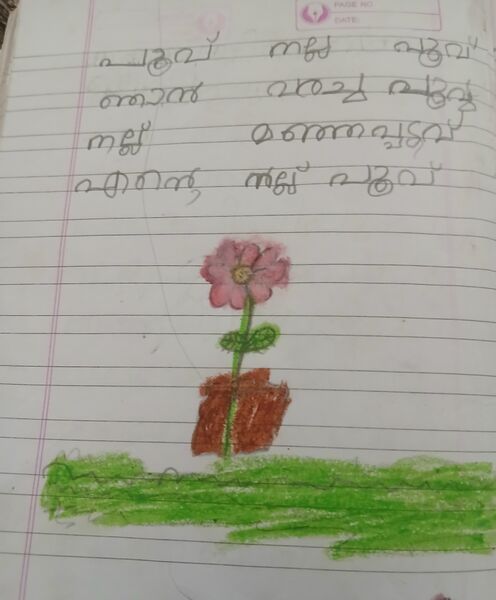 PAGE NO
DATE:
പൂവ് നല്ല പൂവ്
ഞാൻ വരച്ച പൂവ്
നല്ല് മഞ്ഞപ്പൂവ്
എന്റെ നല്ല് പൂവ്